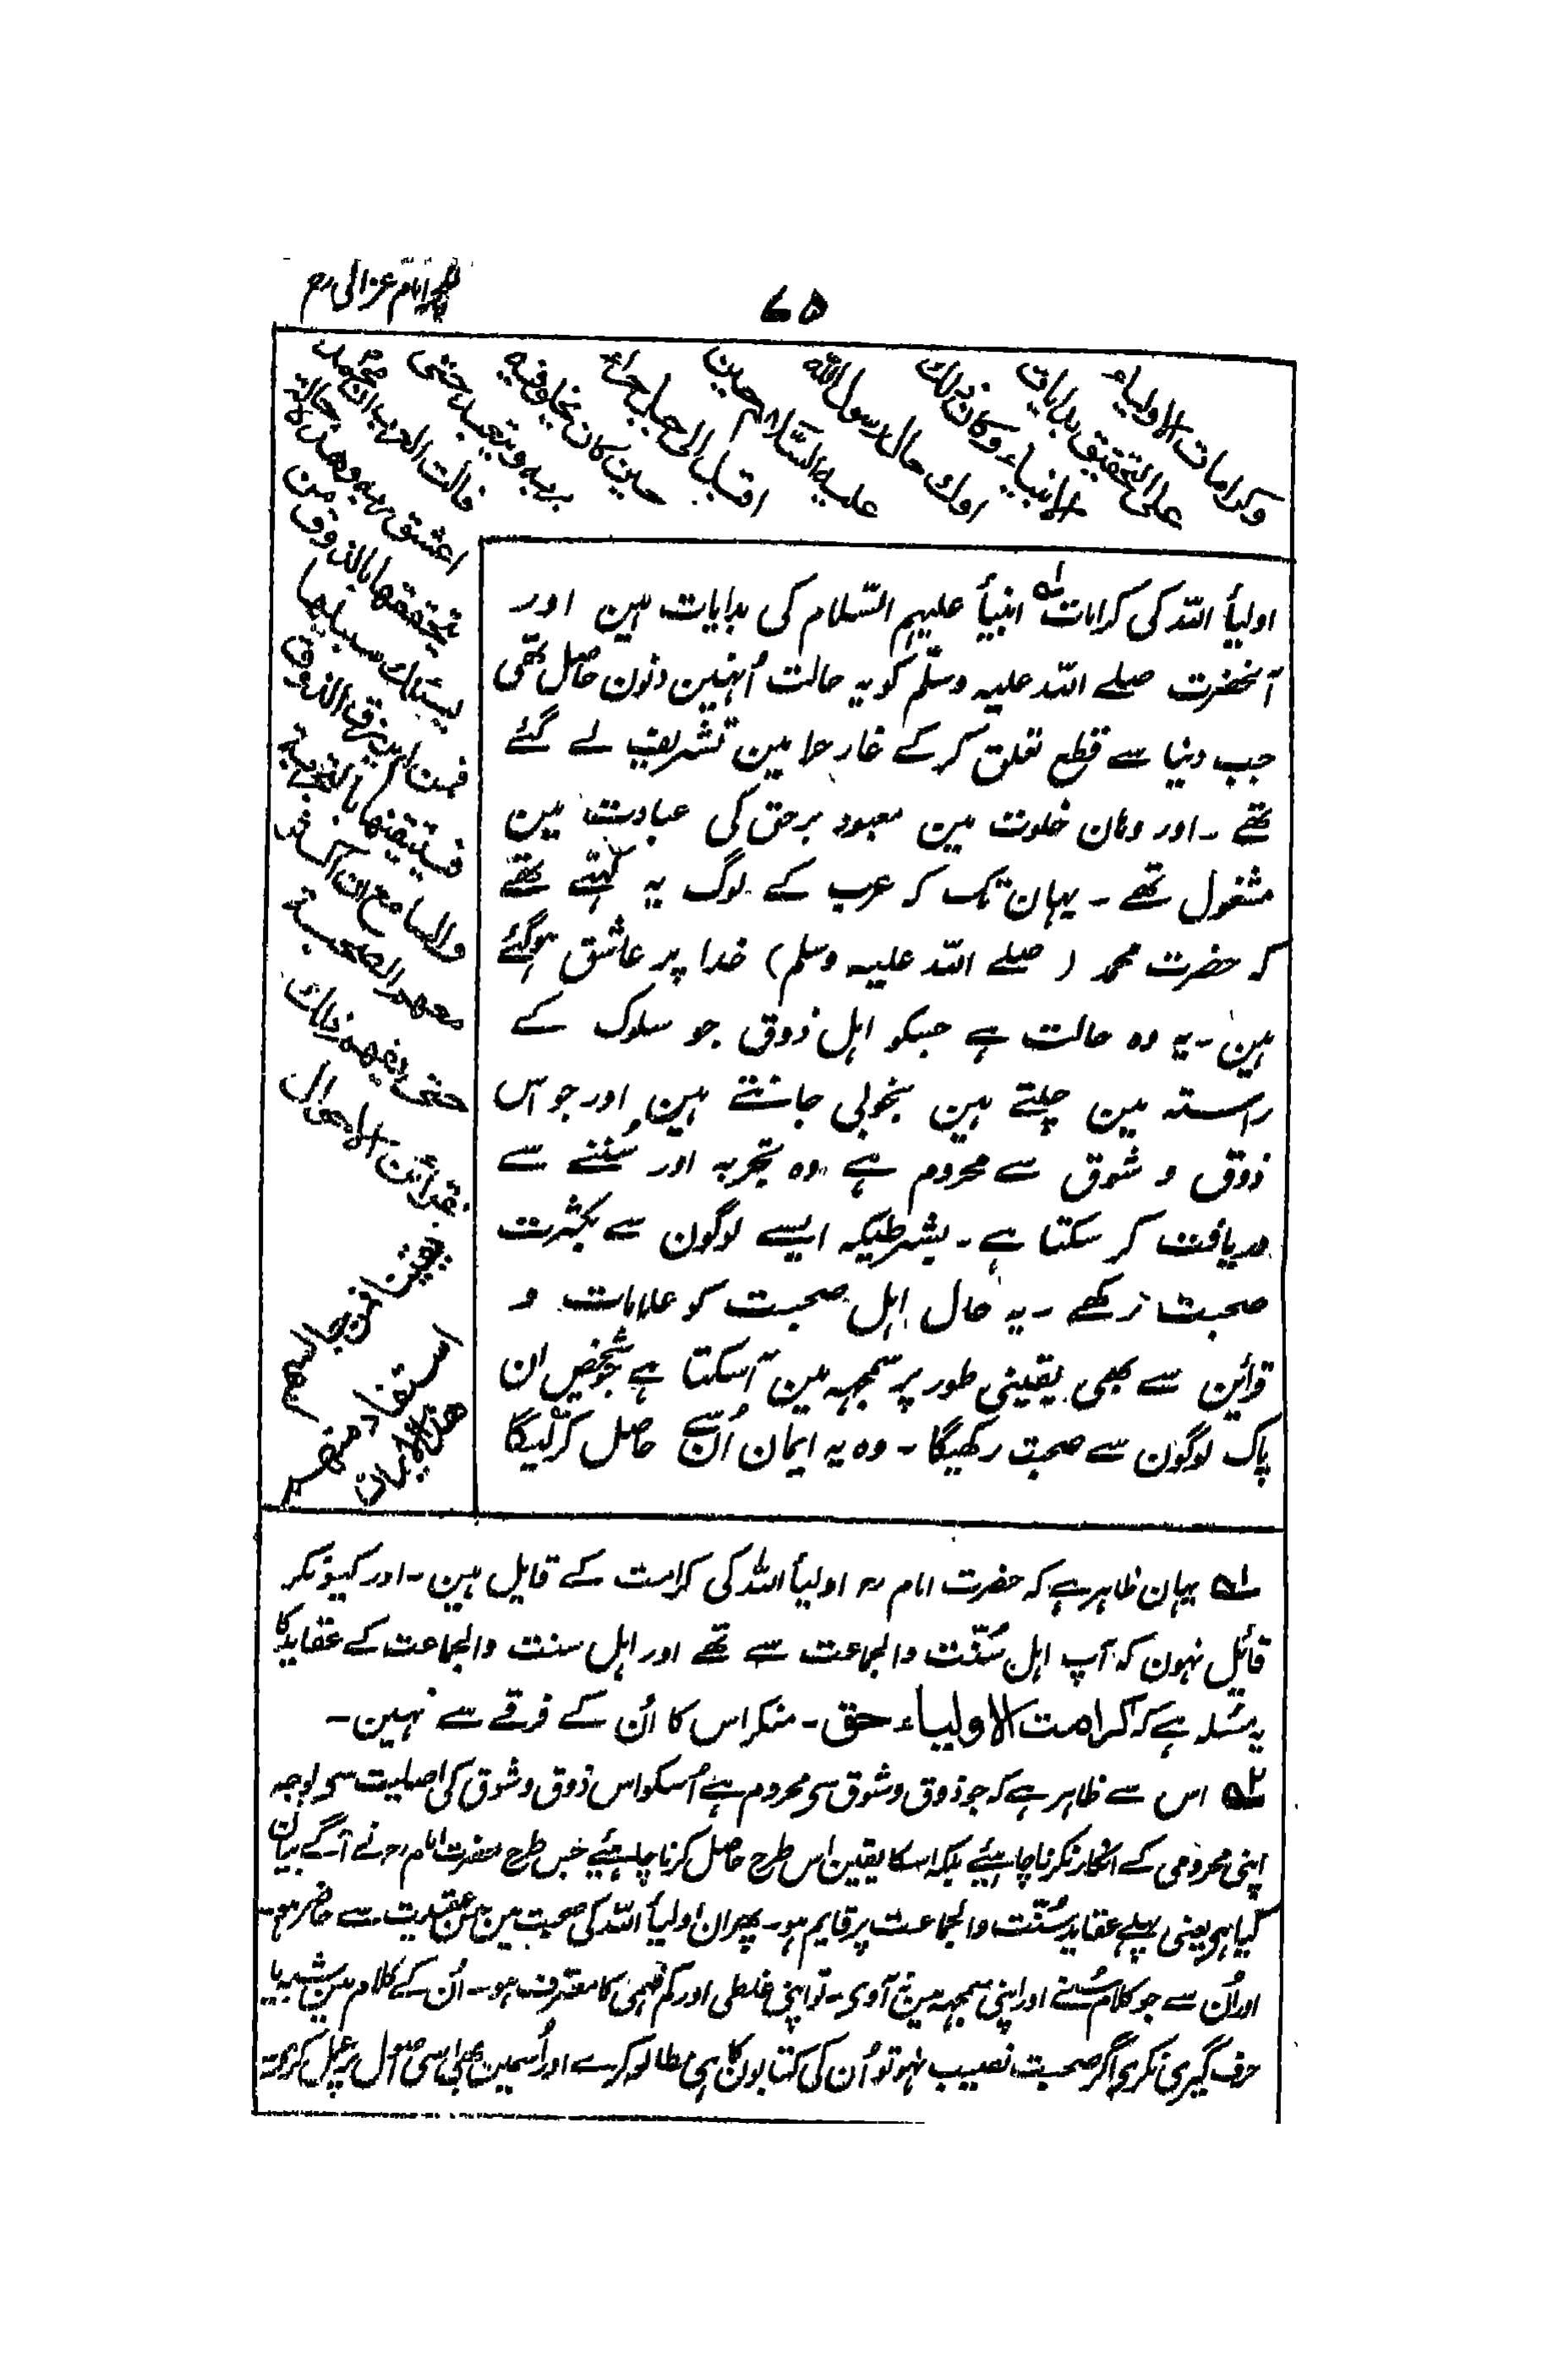 ۷۵
امام غزالی رح
وكرامات الاولياء
على التحقيق بدايات
الانبياء وكان ذلك
اول حال رسول الله
عليه السلام حين
اقبل الى جبل حراء
حين كان يخلو فيه
بربه ويتعبد حتى
قالت العرب ان محمد
اعشق ربه وهذه حالة
يتحققها بالذوق من
يسلك سبيلها
فمن لم يرزق الذوق
فيتيقنها بالتجربة
والسامع ان اكثر
معهم الصحبة
حتى يفهم ذلك
بقرائن الاحوال
يقين ومن جالسهم
استفاد منهم
هذا الايمان
اولیأ اللہ کی کرامات ۱؎ انبیأ علیہم السّلام کی بدایات ہین اور
آنحضرت صلے اللہ علیہ وسلّم کو یہ حالت اُنہین دنون حاصل تھی
جب دنیا سے قطع تعلق کر کے غار حرا مین تشریف لے گئے
تھے ۔ اور وہان خلوت مین معبود برحق کی عبادت مین
مشغول تھے ۔ یہان تک کہ عرب کے لوگ یہ کہتے تھے
کہ حضرت محمد (صلے اللہ علیہ وسلم) خدا پر عاشق ہوگئے
ہین ۔ یہ وہ حالت ہے جسکو اہل ذوق جو سلوک کے
راستہ مین چلتے ہین بخوبی جانتے ہین اور جو اس
ذوق و شوق سے محروم ہے وہ تجربہ اور سُننے سے
دریافت کر سکتا ہے ۔ بشرطیکہ ایسے لوگون سے بکثرت
صحبت رکھے ۔ یہ حال اہل صحبت کو علامات و
قرائن سے بھی یقینی طور پر سمجہہ مین آسکتا ہے جو شخص ان
پاک لوگون سے صحبت رکھیگا ۔ وہ یہ ایمان اُن سے حاصل کرلیگا
۱؎ یہان ظاہر ہے کہ حضرت امام رح اولیأ اللہ کی کرامت کے قایل ہین ۔ اور کیونکر
قائل نہون کہ آپ اہل سُنّت والجماعت سے تھے اور اہل سنت والجماعت کے عقاید کا
یہ مسئلہ ہے کہ کرامت الاولیاء حق ۔ منکر اس کا اُن کے فرقے سے نہین ۔
۲؎ اس سے ظاہر ہے کہ جو ذوق و شوق سے محروم ہے اُسکو اس ذوق و شوق کی اصلیت سے بوجہ
اپنی محرومی کے انکار نکرنا چاہیئے بلکہ اسکا یقین اس طرح حاصل کرنا چاہیئے جس طرح حضرت امام رح نے آگے بیان
کیا ہے یعنی پہلے عقاید سُنّت والجماعت پر قایم ہو ۔ پھر ان اولیأ اللہ کی صحبت مین حسن عقیدت سے حاضر ہو ۔
اور اُن سے جو کلام سُنے اور اپنی سمجہہ مین نہ آوے ۔ تو اپنی غلطی اور کم فہمی کا معترف ہو ۔ اُن کے کلام مین شبہ یا
حرف گیری نکرے اگر صحبت نصیب نہو تو اُن کی کتابون کا ہی مطالعہ کرے اور اُسمین بھی اسی اصول پر عمل کرے ۔